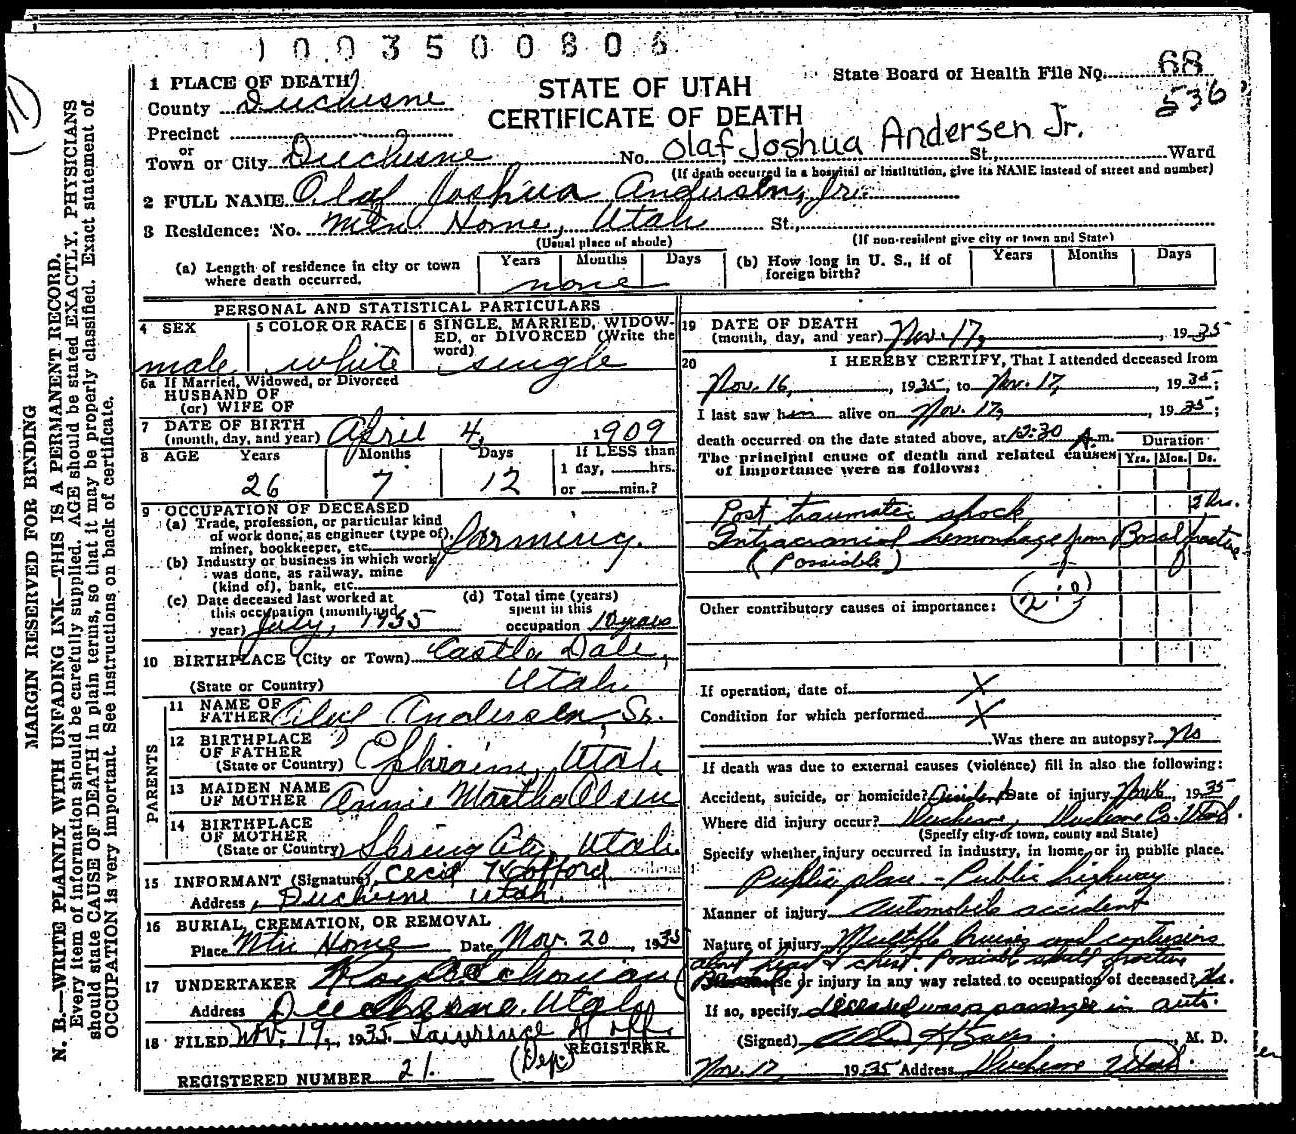 1003500806
State Board of Health File No. 68
536
STATE OF UTAH
CERTIFICATE OF DEATH
1 PLACE OF DEATH
County Duchesne
Precinct
or
Town or City Duchesne No. Olaf Joshua Andersen Jr. St., Ward
(If death occurred in a hospital or institution, give its NAME instead of street and number)
2 FULL NAME Olaf Joshua Andersen, Jr.
3 Residence: No. Mtn Home, Utah St.,
(Usual place of abode) (If non-resident give city or town and State)
(a) Length of residence in city or town where death occurred. Years Months Days none
(b) How long in U. S., if of foreign birth? Years Months Days
PERSONAL AND STATISTICAL PARTICULARS
4 SEX male
5 COLOR OR RACE white
6 SINGLE, MARRIED, WIDOWED, or DIVORCED (Write the word) single
6a If Married, Widowed, or Divorced
HUSBAND OF
(or) WIFE OF
7 DATE OF BIRTH
(month, day, and year) April 4, 1909
8 AGE Years Months Days If LESS than
1 day, hrs.
26 7 12 or min.?
9 OCCUPATION OF DECEASED
(a) Trade, profession, or particular kind
of work done, as engineer (type of),
miner, bookkeeper, etc. farming.
(b) Industry or business in which work
was done, as railway, mine
(kind of), bank, etc.
(c) Date deceased last worked at
this occupation (month and
year) July, 1935
(d) Total time (years)
spent in this
occupation 10 years
10 BIRTHPLACE (City or Town) Castle Dale,
(State or Country) Utah.
PARENTS
11 NAME OF
FATHER Olaf Andersen, Sr.
12 BIRTHPLACE
OF FATHER
(State or Country) Ephraim, Utah
13 MAIDEN NAME
OF MOTHER Annie Martha Olsen
14 BIRTHPLACE
OF MOTHER
(State or Country) Spring City, Utah.
15 INFORMANT (Signature) Cecil Kofford
Address, Duchesne Utah.
16 BURIAL, CREMATION, OR REMOVAL
Place Mtn Home Date Nov. 20, 1935
17 UNDERTAKER
Address Duchesne, Utah
18 FILED Nov. 19, 1935. Lawrence
(Dep.) REGISTRAR
REGISTERED NUMBER 21.
19 DATE OF DEATH
(month, day, and year) Nov. 17, 1935
20 I HEREBY CERTIFY, That I attended deceased from
Nov. 16, 1935, to Nov. 17, 1935;
I last saw him alive on Nov. 17, 1935;
death occurred on the date stated above, at 12:30 A.m.
The principal cause of death and related causes
of importance were as follows:
Duration
Yrs. Mos. Ds.
Post traumatic shock 2 hrs.
Intracranial hemorrhage from Basal fracture
(Possible)
Other contributory causes of importance:
If operation, date of X
Condition for which performed X
Was there an autopsy? No
If death was due to external causes (violence) fill in also the following:
Accident, suicide, or homicide? Accident Date of injury Nov 16, 1935
Where did injury occur? Duchesne, Duchesne Co. Utah.
(Specify city or town, county and State)
Specify whether injury occurred in industry, in home, or in public place.
Public place - Public highway
Manner of injury Automobile accident
Nature of injury Multiple bruises and contusions
about head & chest. Possible skull fracture
or injury in any way related to occupation of deceased? No.
If so, specify deceased was passenger in auto.
(Signed) M. D.
Nov. 17, 1935 Address Duchesne Utah.
MARGIN RESERVED FOR BINDING
N. B.—WRITE PLAINLY WITH UNFADING INK—THIS IS A PERMANENT RECORD.
Every item of information should be carefully supplied. AGE should be stated EXACTLY. PHYSICIANS
should state CAUSE OF DEATH in plain terms, so that it may be properly classified. Exact statement of
OCCUPATION is very important. See instructions on back of certificate.